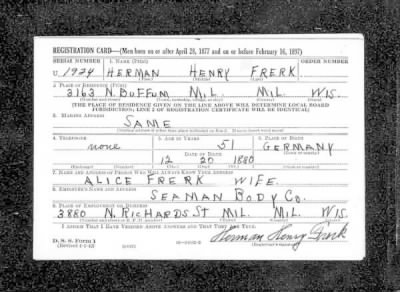 REGISTRATION CARD—(Men born on or after April 28, 1877 and on or before February 16, 1897)
SERIAL NUMBER 1. NAME (Print) ORDER NUMBER
U 1924 HERMAN HENRY FRERK
(First) (Middle) (Last)
2. PLACE OF RESIDENCE (Print)
3163 N. BUFFUM MIL. MIL. WIS.
(Number and street) (Town, township, village, or city) (County) (State)
[THE PLACE OF RESIDENCE GIVEN ON THE LINE ABOVE WILL DETERMINE LOCAL BOARD
JURISDICTION; LINE 2 OF REGISTRATION CERTIFICATE WILL BE IDENTICAL]
3. MAILING ADDRESS
SAME
[Mailing address if other than place indicated on line 2. If same insert word same]
4. TELEPHONE 5. AGE IN YEARS 6. PLACE OF BIRTH
none 51 GERMANY
DATE OF BIRTH
12 20 1880
7. NAME AND ADDRESS OF PERSON WHO WILL ALWAYS KNOW YOUR ADDRESS
ALICE FRERK WIFE
8. EMPLOYER'S NAME AND ADDRESS
SEAMAN BODY CO.
9. PLACE OF EMPLOYMENT OR BUSINESS
3880 N. RICHARDS ST MIL. MIL. WIS
I AFFIRM THAT I HAVE VERIFIED ABOVE ANSWERS AND THAT THEY ARE TRUE.
D. S. S. Form 1
(Revised 4-1-42)
Herman Henry Frerk
(Registrant's signature)